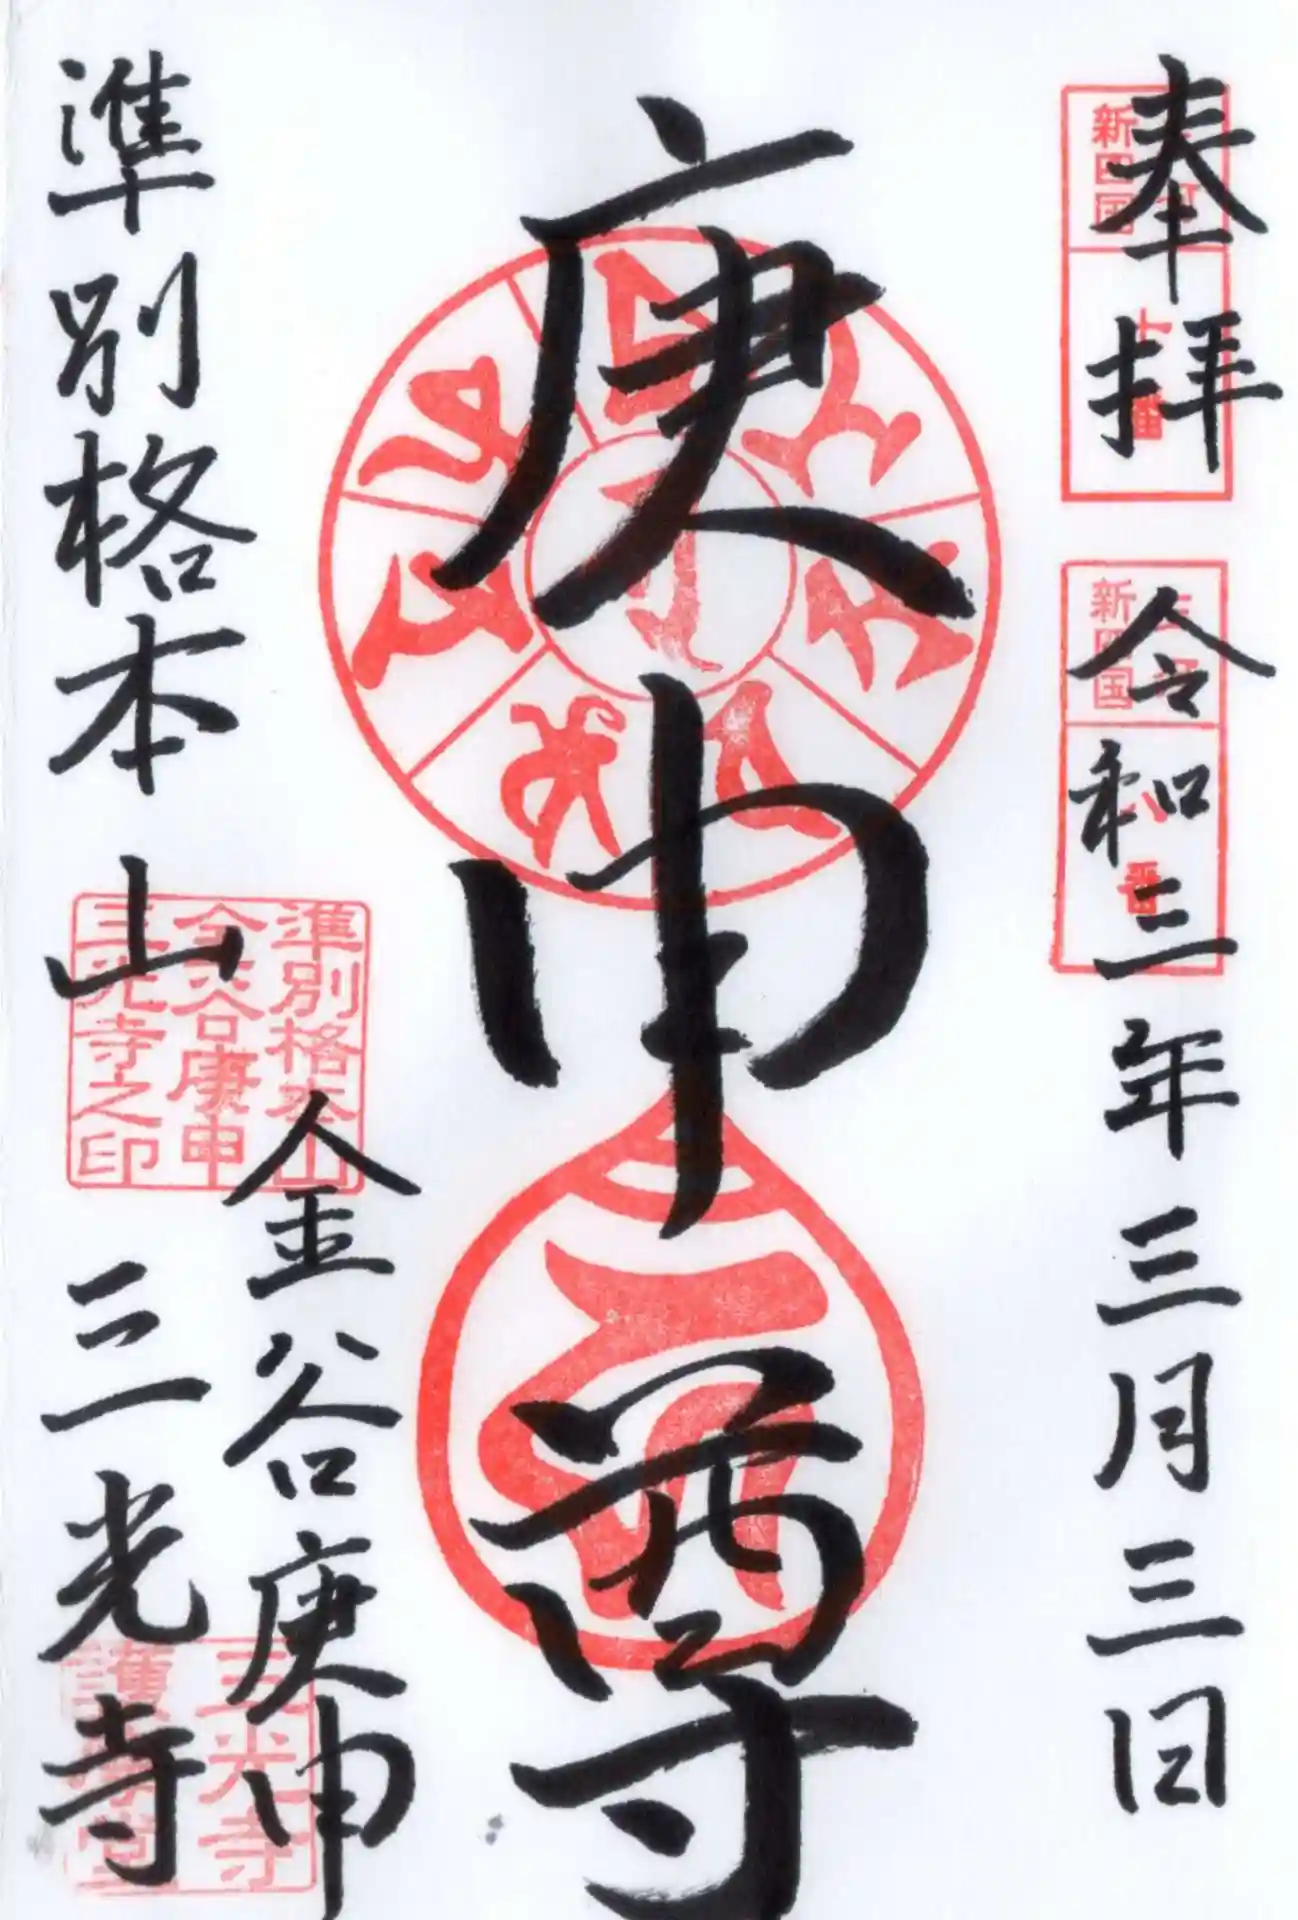 奉拝
令和三年三月三日
庚申尊
準別格本山
金谷庚申
三光寺
新四国
番
新四国
八番
準別格本山
金谷庚申
三光寺之印
三光寺
護摩堂